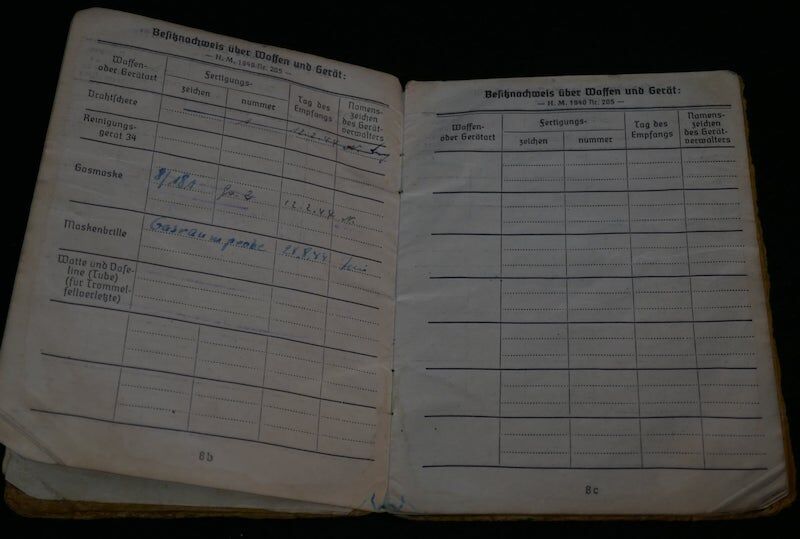 Besitznachweis über Waffen und Gerät:
— H. M. 1940 Nr. 205 —
Waffen-
oder Geräteart
Fertigungs-
zeichen
nummer
Tag des
Empfangs
Namens-
zeichen
des Gerät-
verwalters
Drahtschere
Reinigungs-
gerät 34
12.2.44
Gasmaske
12.2.44
Maskenbrille
Gasraumprobe 28.8.44
Watte und Vase-
line (Tube)
(für Trommel-
fellverletzte)
8b
Besitznachweis über Waffen und Gerät:
— H. M. 1940 Nr. 205 —
Waffen-
oder Geräteart
Fertigungs-
zeichen
nummer
Tag des
Empfangs
Namens-
zeichen
des Gerät-
verwalters
8c